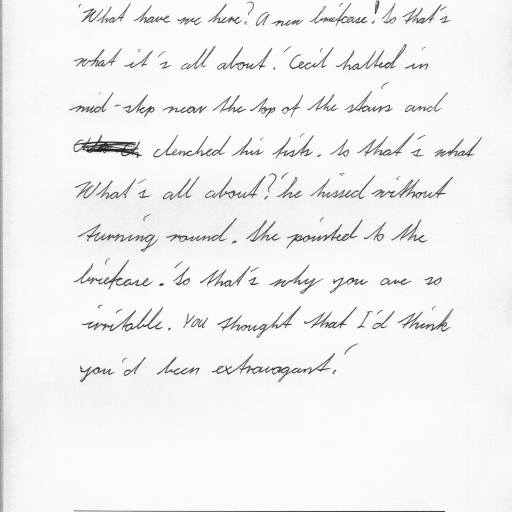 'What have we here? A new briefcase! So that's
what it's all about.' Cecil halted in
mid-step near the top of the stairs and
clenched his fists. 'So that's what
What's all about?' he hissed without
turning round. She pointed to the
briefcase. 'So that's why you are so
irritable. You thought that I'd think
you'd been extravagant.'